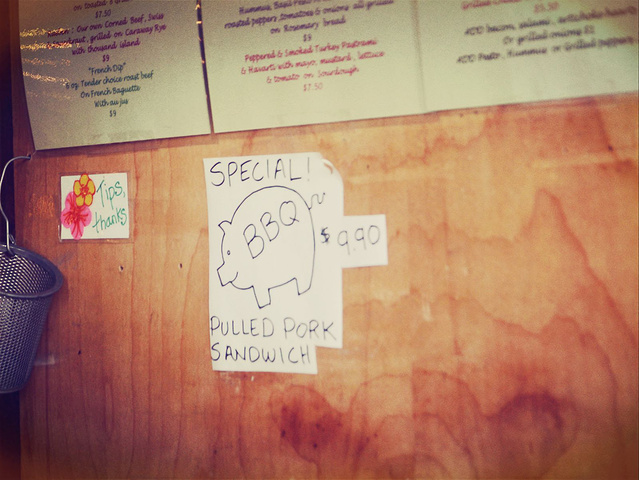 $7.50
: Our own Corned Beef, Swiss
, grilled on Caraway Rye
with thousand island
$9
"French Dip"
6 oz. Tender choice roast beef
On French Baguette
With au jus
$9
Hummus, Basil
roasted peppers, tomatoes & onions all grilled
on Rosemary bread
$9
Peppered & Smoked Turkey Pastrami
& Havarti with mayo, mustard, lettuce
& tomato on Sourdough
$7.50
$5.50
ADD bacon, salami, artichoke hearts
Or grilled onions $2
ADD Pesto, Hummus or Grilled peppers
Tips,
thanks
SPECIAL!
BBQ
$9.90
PULLED PORK
SANDWICH